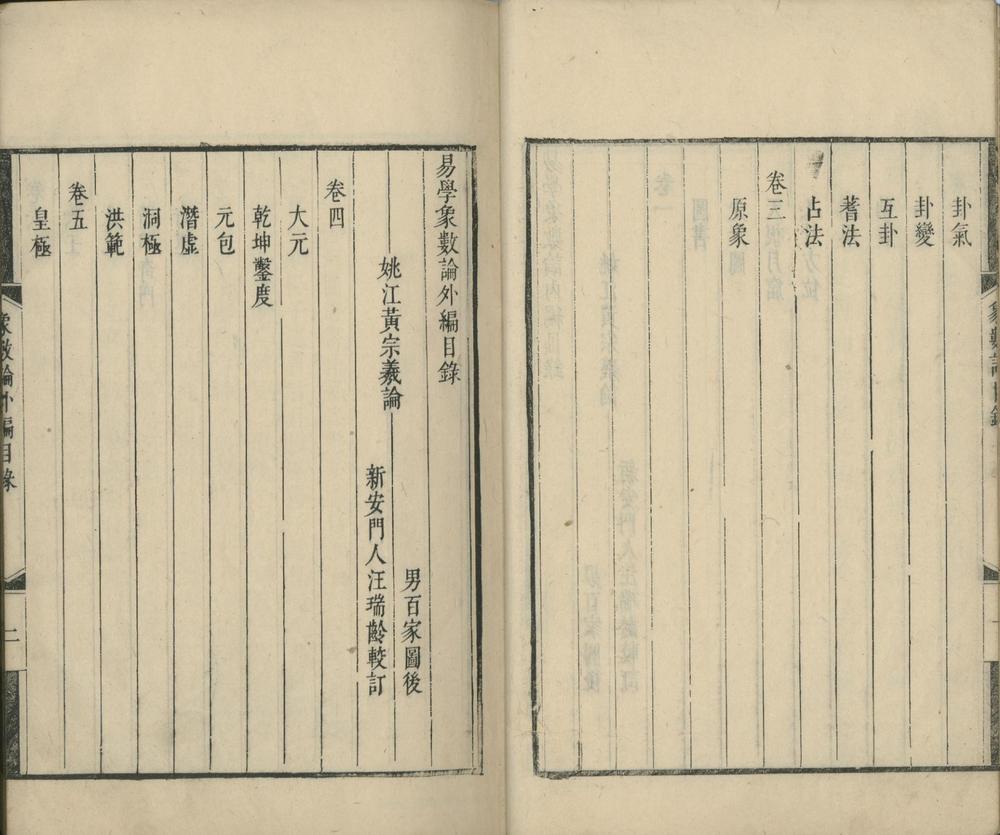 卦氣
卦變
互卦
蓍法
占法
卷三
原象
易學象數論外編目錄
姚江黃宗羲論
男百家圖後
新安門人汪瑞齡較訂
卷四
大元
乾坤鑿度
元包
潛虛
洞極
洪範
卷五
皇極
象數論外編目錄
二